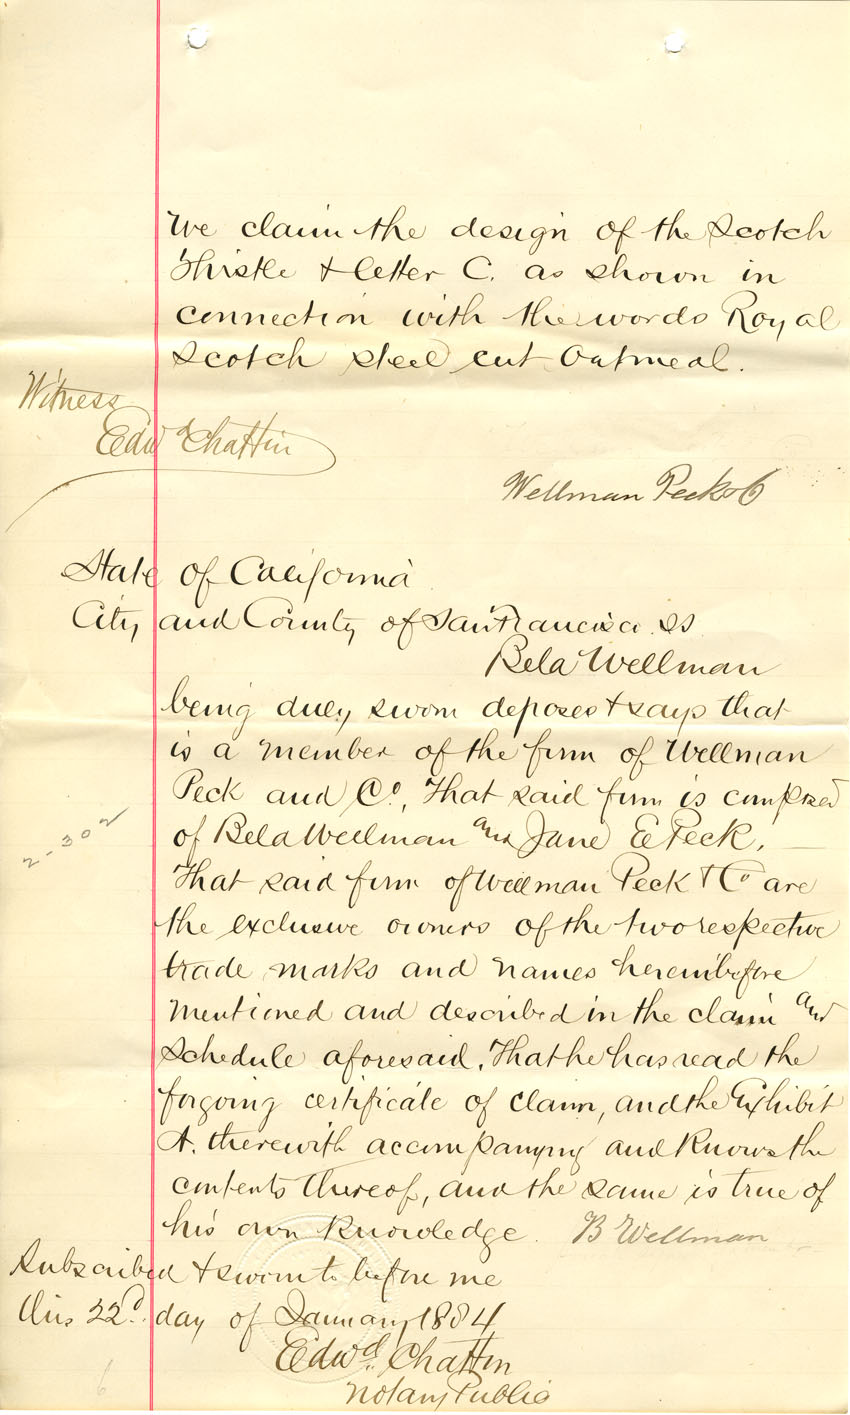 We claim the design of the Scotch
Thistle & letter C. as shown in
connection with the words Royal
Scotch steel cut Oatmeal.
Witness
Edwd Chattin
Wellman Peck & Co
State of California
City and County of San Francisco ss
Bela Wellman
being duly sworn deposes & says that
is a member of the firm of Wellman
Peck and Co, That said firm is composed
of Bela Wellman and Jane E Peck,
That said firm of Wellman Peck & Co are
the exclusive owners of the two respective
trade marks and names hereinbefore
mentioned and described in the claim and
Schedule aforesaid. That he has read the
forgoing certificate of claim, and the Exhibit
A. therewith accompanying and knows the
contents thereof, and the same is true of
his own knowledge. B Wellman
Subscribed & sworn to before me
this 22d. day of January 1884
Edwd. Chattin
Notary Public
2-302
6